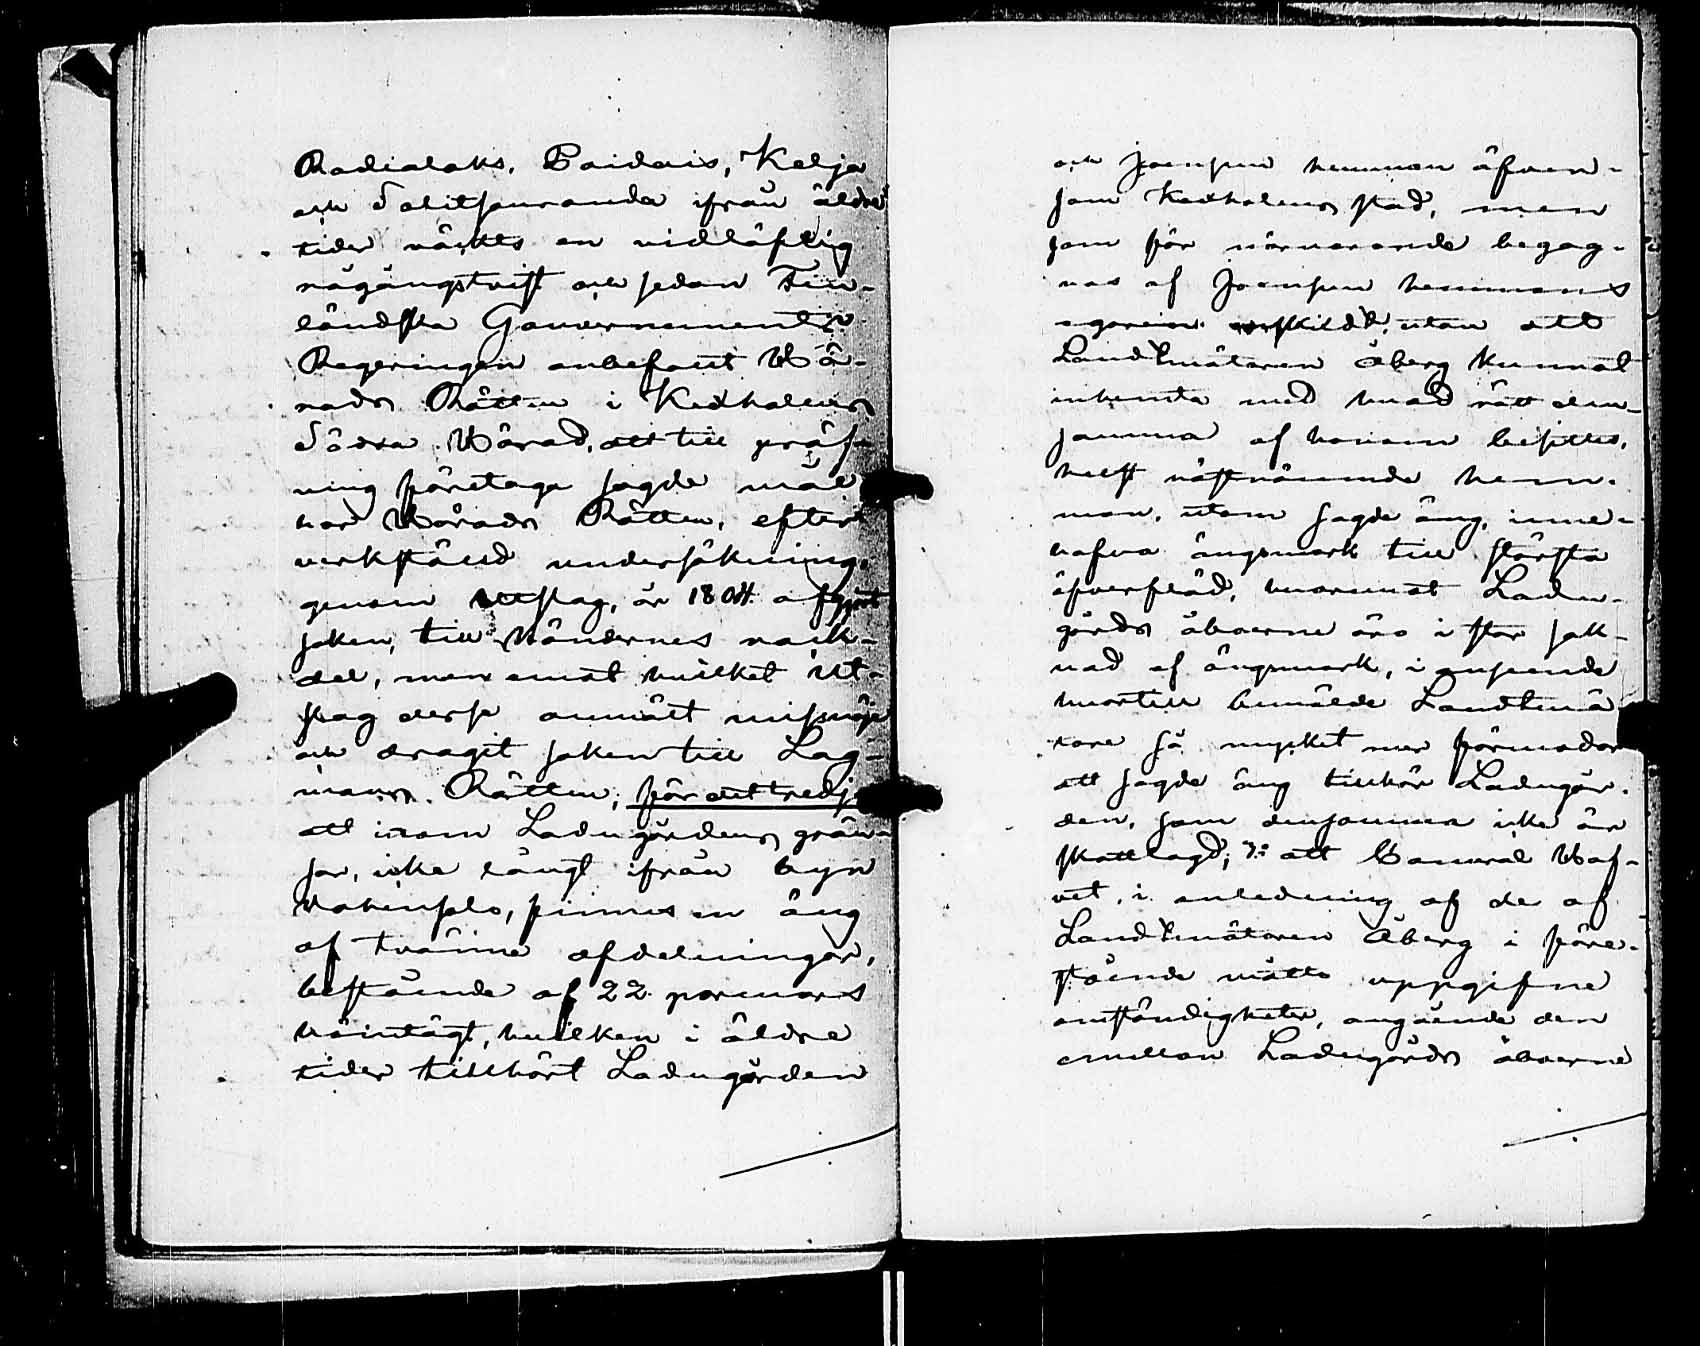 Radialaks, Paidais, Kelja
och Salitsauranda ifrån äldre
tider väckts en vidlöftig
rågångstvist och sedan Fin-
ländska Gouvernements
Regeringen anbefallt Hä-
rads Rätten i Kexholms
Södra Härad, att till pröf-
ning företaga sagde mål
har Härads Rätten, efter
verkställd undersökning,
genom utslag, år 1804 afgjort
saken, till böndernes nack-
del, men emot hvilket Ut-
slag desse anmält missnöje
och dragit saken till Lag-
mans Rätten; för det tredje
att inom Ladugårdens grän-
sor, icke långt ifrån byn
finnes en äng
af tvänne afdelningar,
bestående af 22 parmars
höintägt, hvilken i äldre
tider tillhört Ladugården
och Joensuu hemman äfven-
som Kexholms stad, men
som för närvarande begag-
nas af Joensuu hemmans
egaren utan att
Landtmätaren Åberg kunnat
inhemta med hvad rätt den-
samma af honom besittes,
helst nästnämnde hem-
man, utom sagde äng, inne-
hafva ängsmark till största
öfverflöd, hvaremot Ladu-
gårds åboerne äro i stor sak-
nad af ängsmark, i anseende
hvartill bemälde Landtmä-
tare så mycket mer förmodar
att sagde äng tillhör Ladugår-
den, som densamma icke är
skattlagd; 3:o att Cameral Hof-
vet, i anledning af de af
Landtmätaren Åberg i före-
stående måtto uppgifne
omständigheter, angående den
emellan Ladugårds åboerne